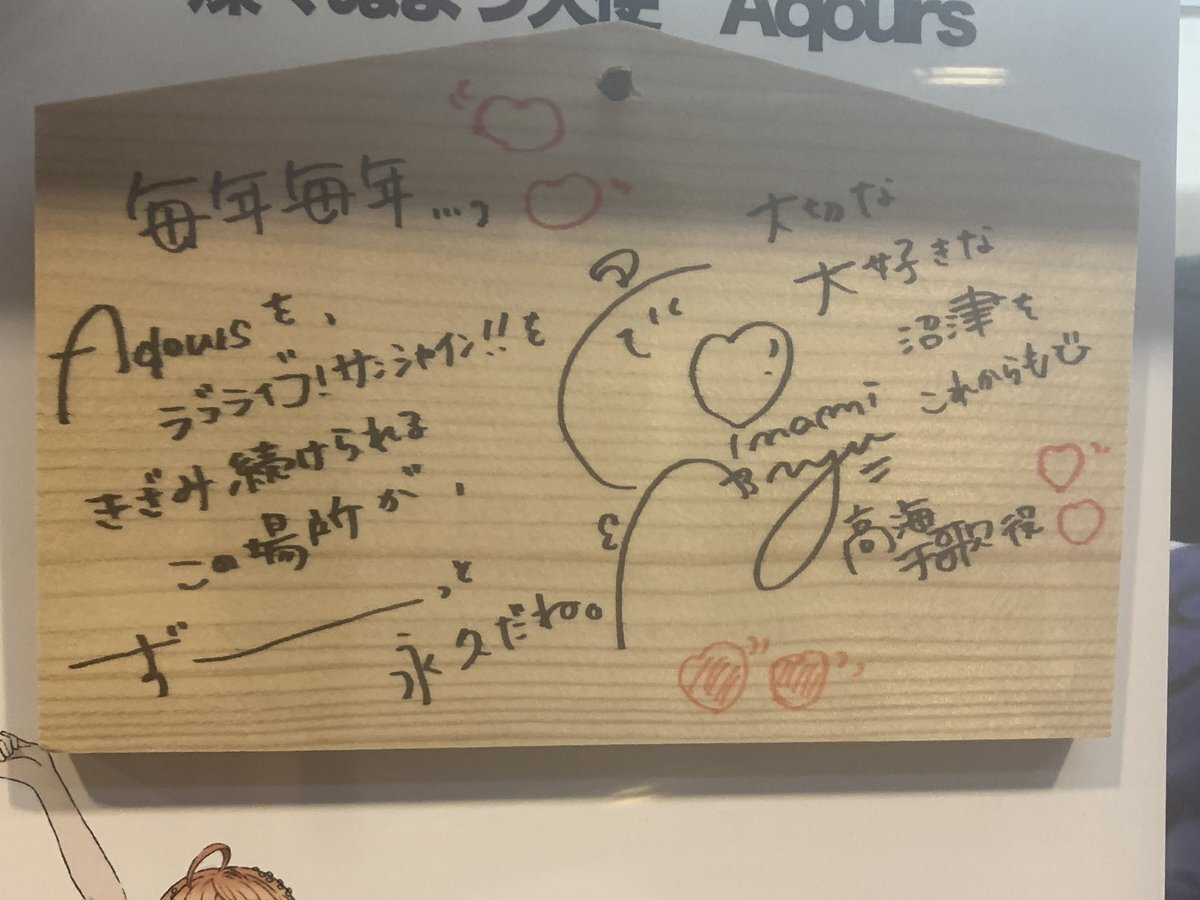 Aqours
毎年毎年…っ
Aqoursを、
ラブライブ!サンシャイン!!を
きざみ続けられる
この場所が、
ずーーっと
永久だね。
大切な
大好きな
沼津を
これからも
Inami
Anju
高海
千歌役